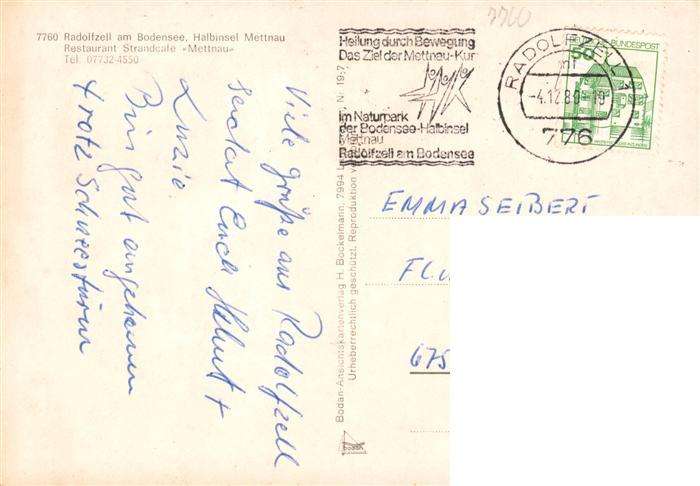 7760 Radolfzell am Bodensee, Halbinsel Mettnau
Restaurant Strandcafe »Mettnau«
Tel. 07732-4550
7760
Heilung durch Bewegung
Das Ziel der Mettnau-Kur
im Naturpark
der Bodensee-Halbinsel
Mettnau
Radolfzell am Bodensee
RADOLFZELL 1
-4.12.80-19
776
BUNDESPOST
50
Viele Grüße aus Radolfzell
sendet Euch Helmut +
Luzie.
Bin gut angekommen
trotz Schneesturm
Bodan-Ansichtskartenverlag H. Bockelmann, 7994
Urheberrechtlich geschützt. Reproduktion
EMMA SEIBERT
675